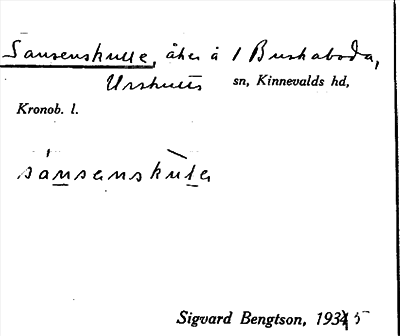 Sansenskulle, åker å 1 Buskaboda,
Urshults sn, Kinnevalds hd,
Kronob. l.
sánsenskùla
Sigvard Bengtson, 1935